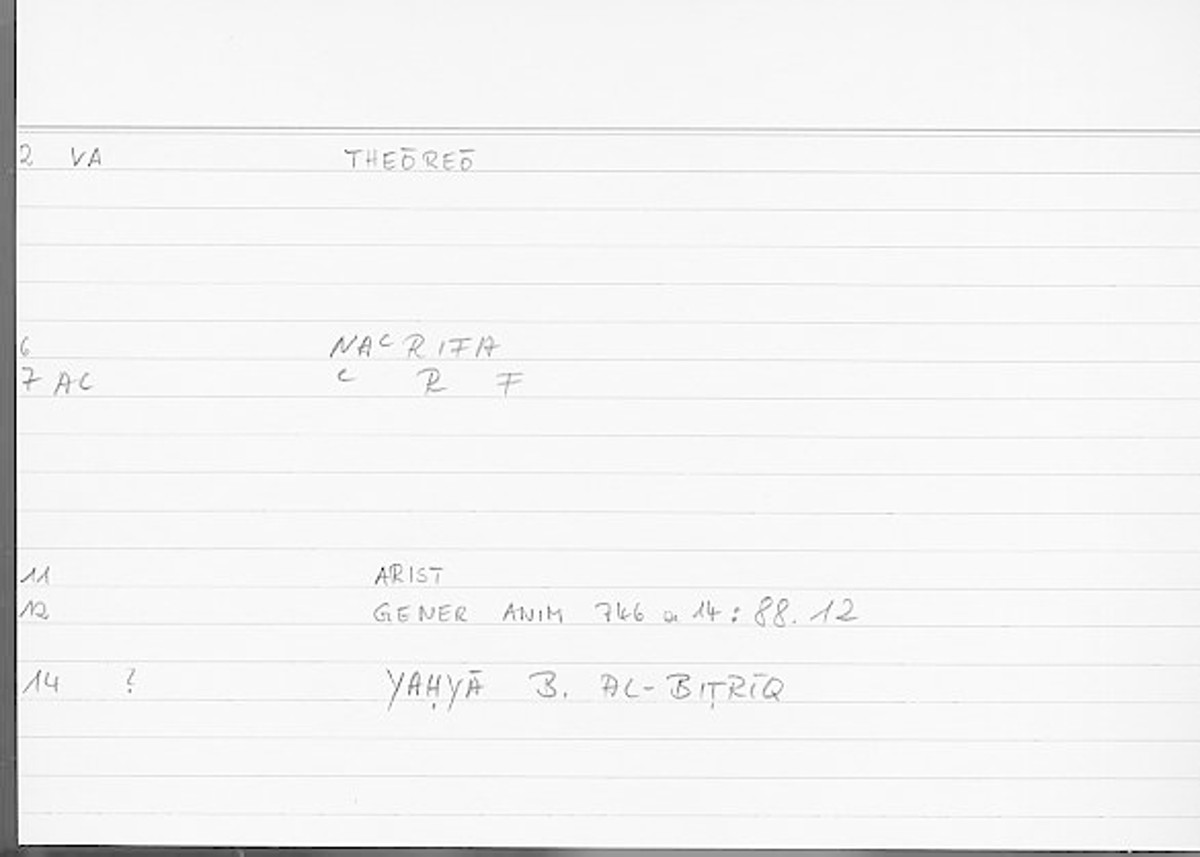 2 VA THEŌREŌ
6 NAᶜRIFA
7 AC ᶜ R F
11 ARIST
12 GENER ANIM 746 a 14: 88.12
14 ? YAḤYĀ B. AL-BIṬRĪQ